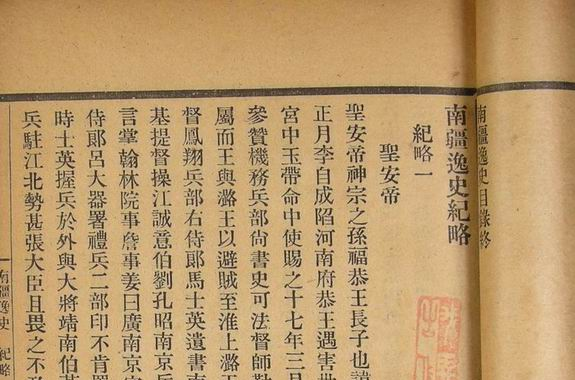 南疆逸史目錄終
南疆逸史紀略
紀略一
聖安帝
聖安帝神宗之孫福恭王長子也
正月李自成陷河南府恭王遇害
宮中玉帶命中使賜之十七年三月
參贊機務兵部尚書史可法督師勤
屬而王與潞王以避賊至淮上潞王
督鳳翔兵部右侍郞馬士英遺書南
基提督操江誠意伯劉孔昭南京兵
言掌翰林院事詹事姜曰廣南京
侍郞呂大器署禮兵二部印不肯署
時士英握兵於外與大將靖南伯黃
兵駐江北勢甚張大臣且畏之不
南疆逸史 紀略